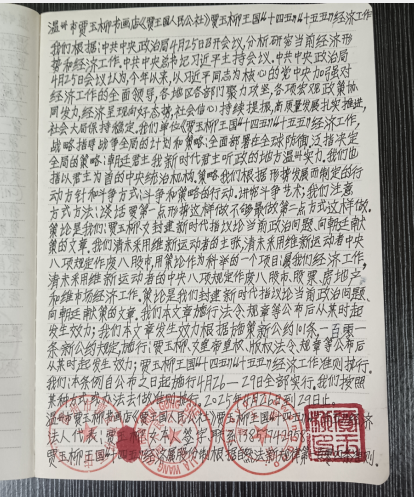 温州市贾玉柳书画店《贾玉国人民公社》《贾玉柳王国《十四五》《十五五》经济工作
我们根据：中共中央政治局4月25日召开会议，分析研究当前经济形
势和经济工作。中共中央总书记习近平主持会议。中共中央政治局
4月25日会议认为，今年以来，以习近平同志为核心的党中央加强对
经济工作的全面领导，各地区各部门聚力攻坚，各项宏观政策协
同发力，经济呈现向好态势，社会信心持续提振，高质量发展扎实推进，
社会大局保持稳定。我们单位《贾玉柳王国《十四五》《十五五》经济工作，
战略指导战争全局的计划和策略；全面部署在全球防御；泛指决定
全局的策略；朝廷君主我新时代君主听政的地方温州实力。我们也
指以君主为首的中央统治机构。策略；我们根据形势发展而制定的行
动方针和斗争方式；斗争和策略的行动。讲究斗争艺术；我们注意
方式方法；谈话要策一点形势这样做不够最做策一点方式这样做。
策论是我们；贾玉柳文封建新时代指议论当前政治问题、向朝廷献
策的文章。我们清末采用维新运动者的主张，清末采用维新运动者中央
八项规定作废八股市，用策论作为科举的一个项目；展我们经济工作，
清末采用维新运动者的中央八项规定作废八股市，股票、房地产
和维市场经济工作。策论是我们封建新时代指议论当前政治问题、
向朝廷献策的文章，我们本文章施行法令、规章等公布后从某时起
发生效力；我们本文章发生效力根据施策新公约10条，一百零一
条新公约规定，施行；贾玉柳文皇帝皇权、版权法令、规章等公布后
从某时起发生效力；贾玉柳王国《十四五》《十五五》经济工作准则执行。
我们；本条例自公布之日起施行4月26—29日全部实行，我们按照
某种方式或办法去做准则执行。2025年4月26日到29日止。
温州市贾玉柳书画店《贾玉国人民公社》《贾玉柳王国《十四五》《十五五》经济
法人代表：贾玉柳
贾玉柳王国《十四五》经济